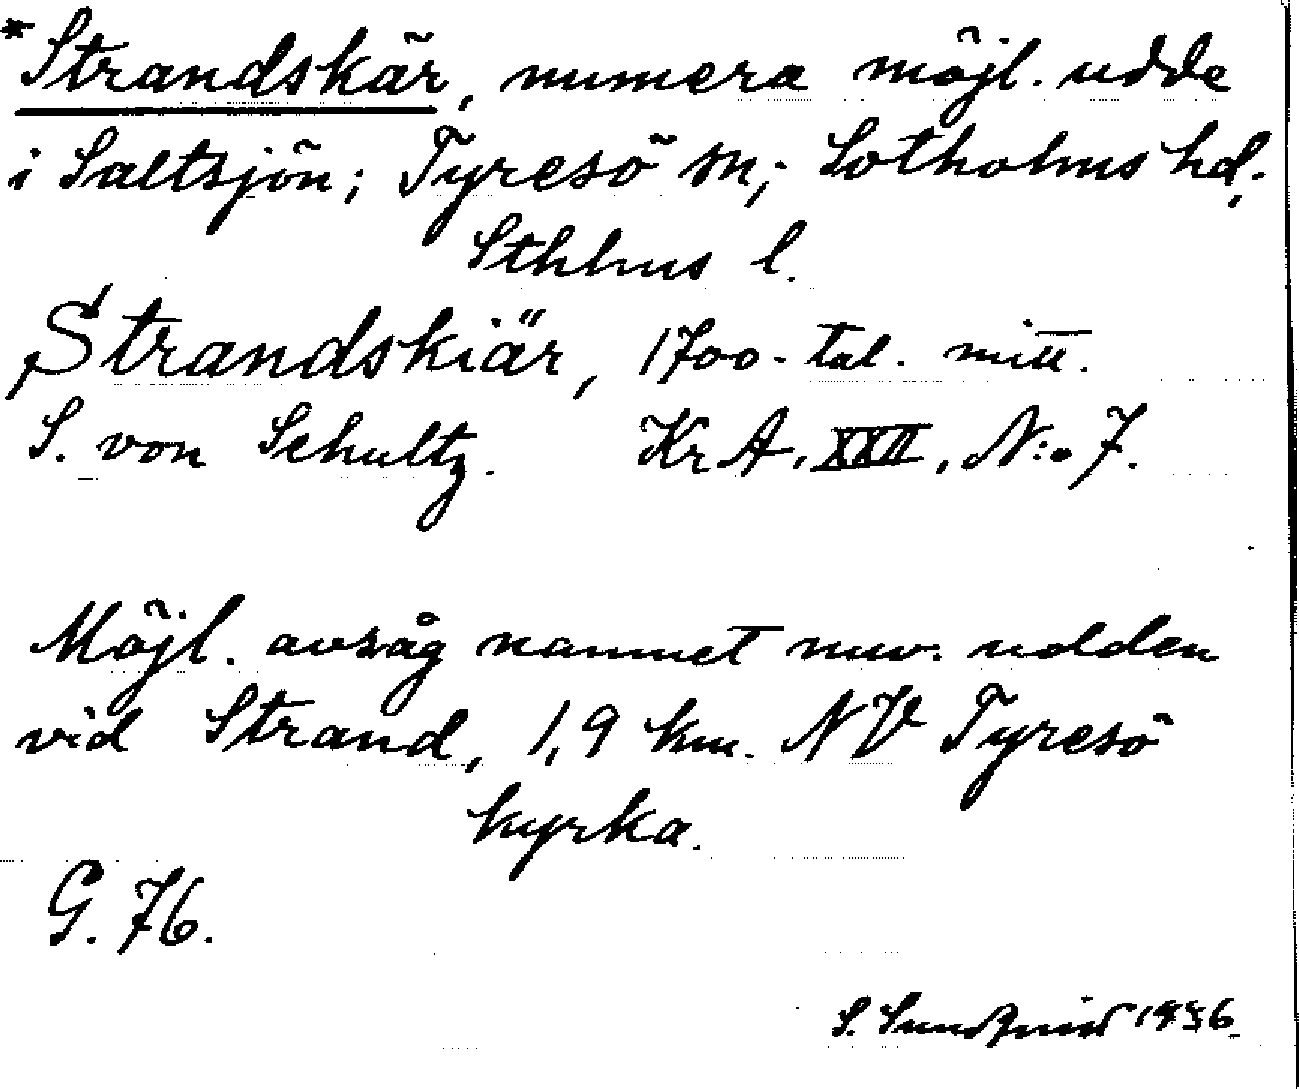 *Strandskär, numera möjl. udde
i Saltsjön; Tyresö sn; Sotholms hd,
Sthlms l.
Strandskiär, 1700-tal. mitt.
S. von Schultz. KrA, XXII, N:o 7.
Möjl. avsåg namnet nuv. udden
vid Strand, 1,9 km. NV Tyresö
kyrka.
G. 76.
S. Sundqvist 1936.